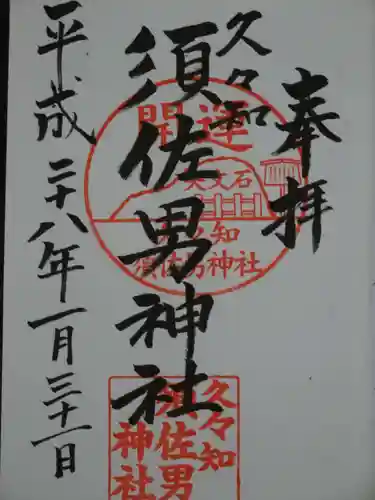 奉拝
久々知
須佐男神社
平成二十八年一月三十一日
開運
天文石
久々知
須佐男神社
久々知
須佐男
神社